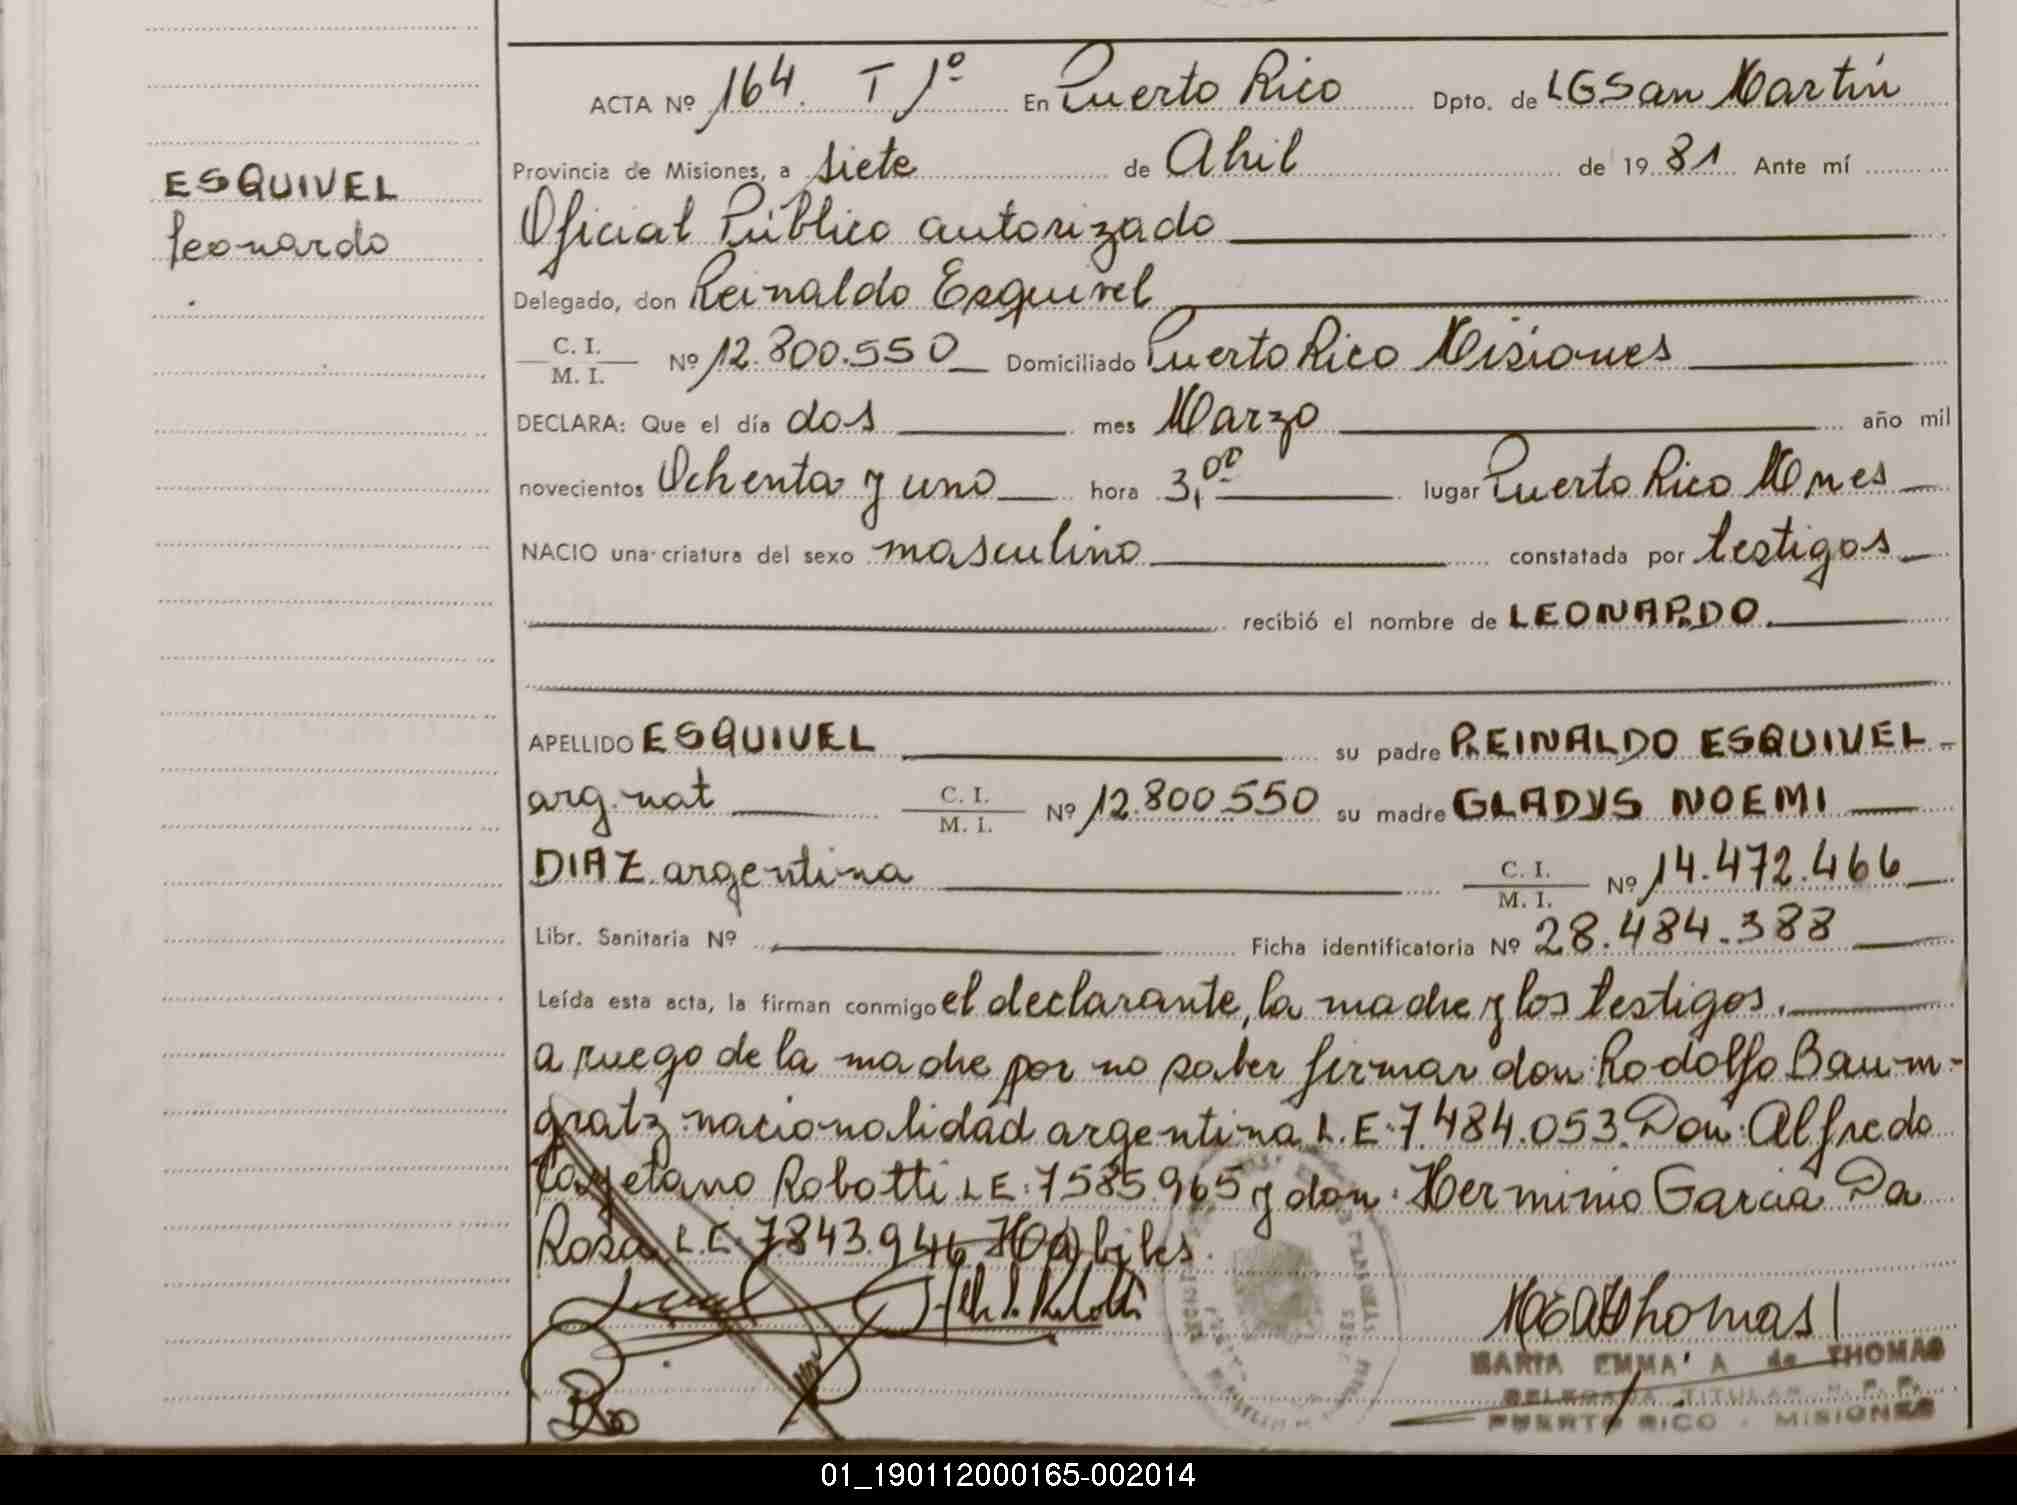 ACTA Nº 164. T 1º En Puerto Rico Dpto. de LGSan Martín
Provincia de Misiones, a siete de Abril de 1981 Ante mí
ESQUIVEL
Leonardo
Oficial Público autorizado
Delegado, don Reinaldo Esquivel
C. I.
M. I.
Nº 12.800.550 Domiciliado Puerto Rico Misiones
DECLARA: Que el día dos mes Marzo año mil
novecientos Ochenta y uno hora 3,00 lugar Puerto Rico Mnes
NACIO una criatura del sexo masculino constatada por testigos
recibió el nombre de LEONARDO.
APELLIDO ESQUIVEL su padre REINALDO ESQUIVEL
arg. nat C. I. Nº 12.800.550 su madre GLADYS NOEMI
M. I.
DIAZ argentina C. I. Nº 14.472.466
M. I.
Libr. Sanitaria Nº Ficha identificatoria Nº 28.484.388
Leída esta acta, la firman conmigo el declarante, la madre y los testigos.
a ruego de la madre por no saber firmar don: Rodolfo Baum-
gratz nacionalidad argentina L.E. 7.484.053. Don: Alfredo
Cayetano Robotti L E: 7585.965 y don: Herminio Garcia Da
Rosa L.E. 7.843.946 Habiles.
MEAThomas
MARIA EMMA A de THOMAS
DELEGADA TITULAR R. P. P.
PUERTO RICO - MISIONES
01_190112000165-002014